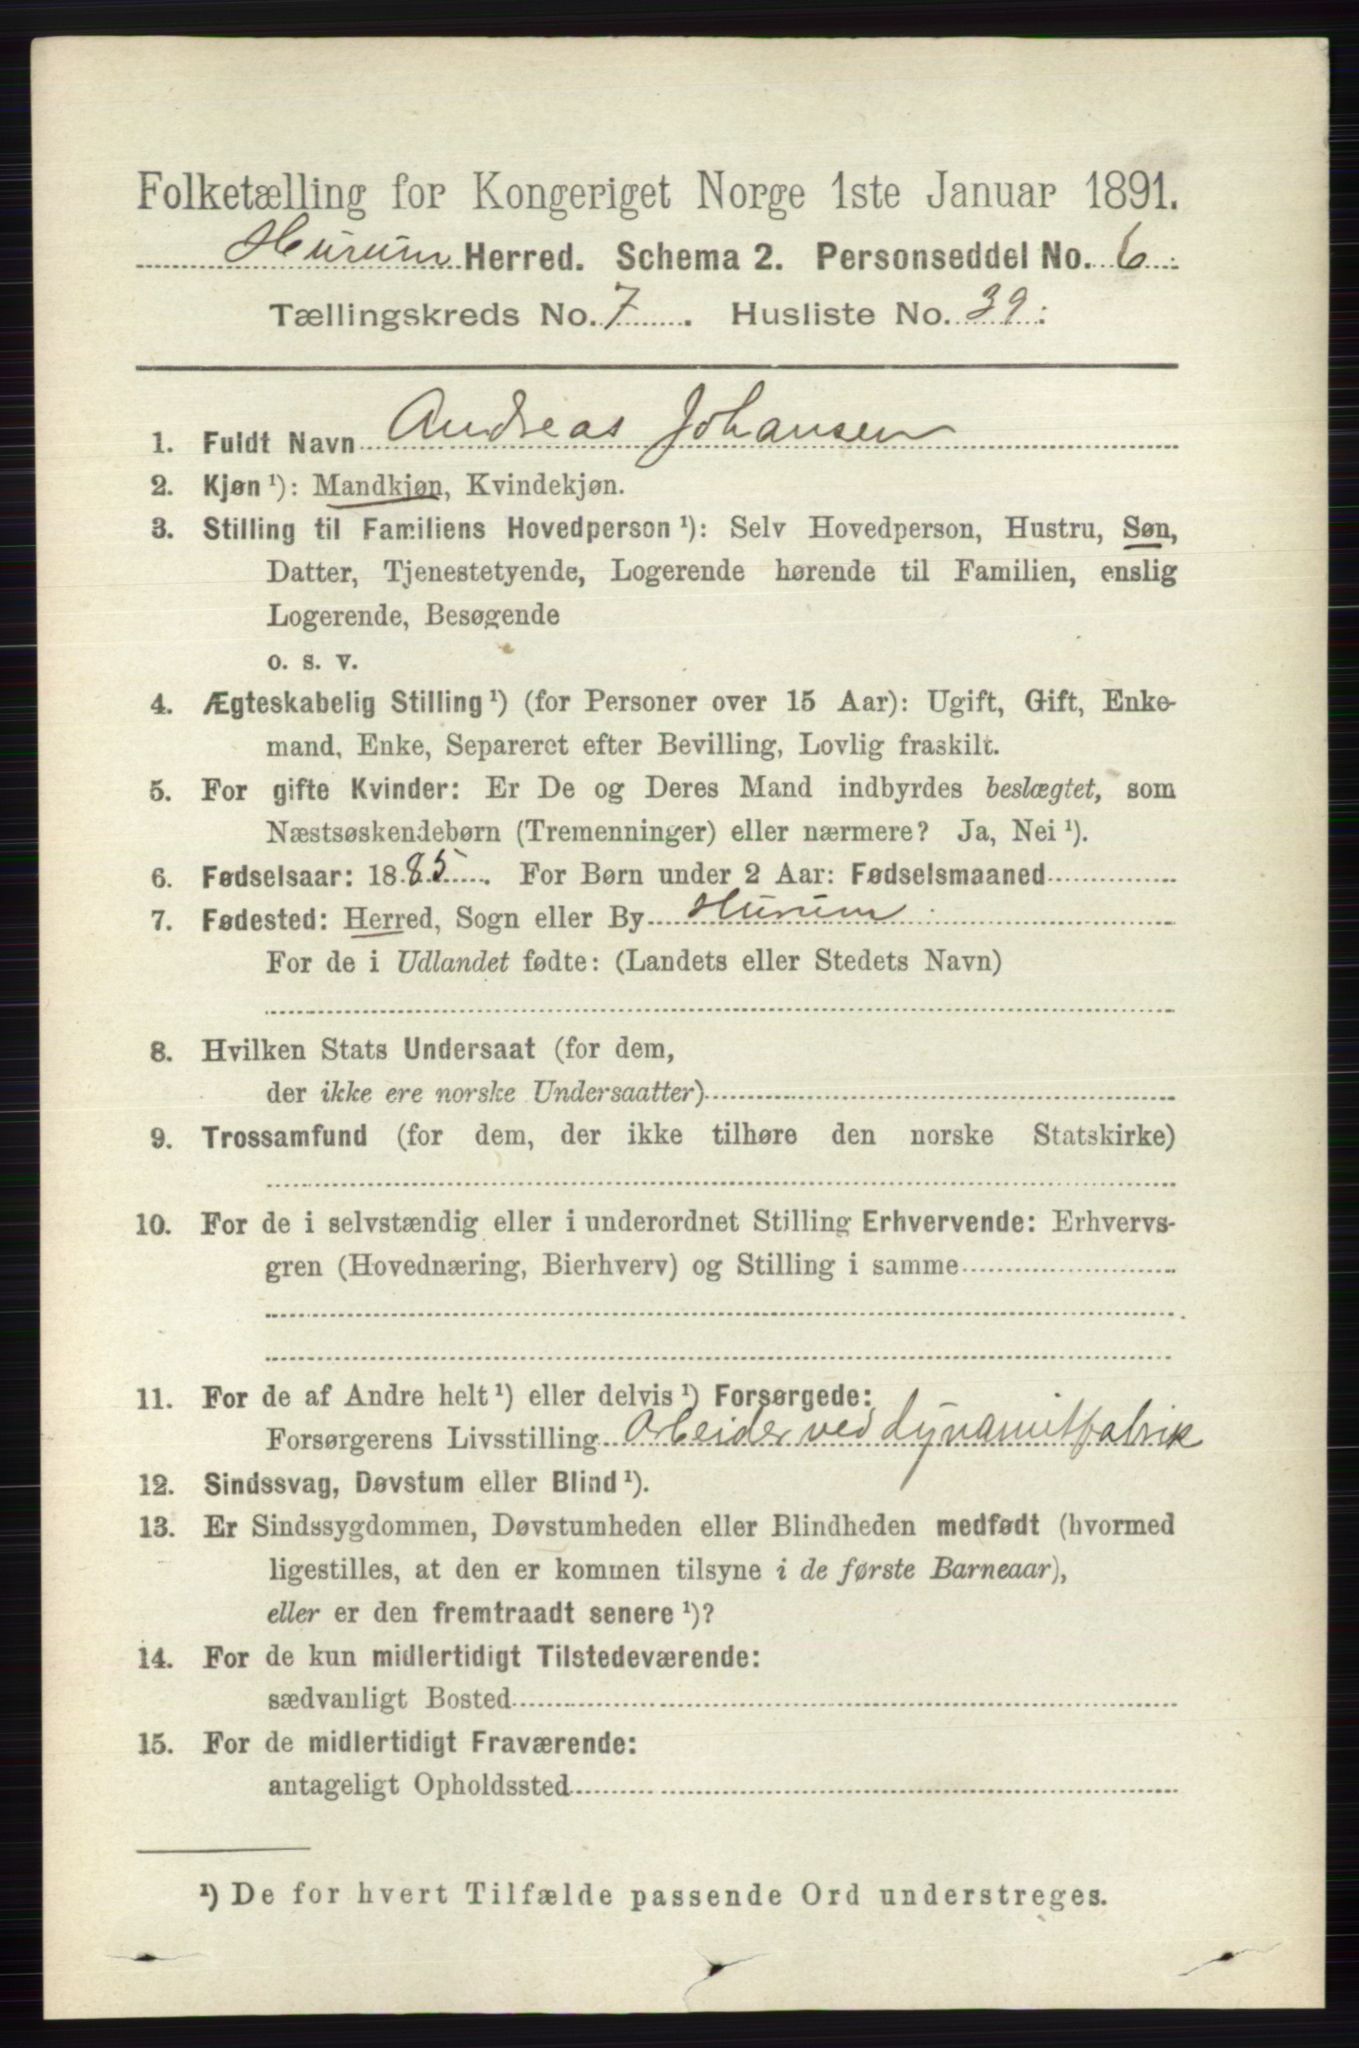 Folketælling for Kongeriget Norge 1ste Januar 1891.
Hurum Herred. Schema 2. Personseddel No. 6.
Tællingskreds No. 7. Husliste No. 39.
1. Fuldt Navn Andreas Johansen
2. Kjøn ¹): Mandkjøn, Kvindekjøn.
3. Stilling til Familiens Hovedperson ¹): Selv Hovedperson, Hustru, Søn,
Datter, Tjenestetyende, Logerende hørende til Familien, enslig
Logerende, Besøgende
o. s. v.
4. Ægteskabelig Stilling ¹) (for Personer over 15 Aar): Ugift, Gift, Enke-
mand, Enke, Separeret efter Bevilling, Lovlig fraskilt.
5. For gifte Kvinder: Er De og Deres Mand indbyrdes beslægtet, som
Næstsøskendebørn (Tremenninger) eller nærmere? Ja, Nei ¹).
6. Fødselsaar: 1885. For Børn under 2 Aar: Fødselsmaaned
7. Fødested: Herred, Sogn eller By Hurum
For de i Udlandet fødte: (Landets eller Stedets Navn)
8. Hvilken Stats Undersaat (for dem,
der ikke ere norske Undersaatter)
9. Trossamfund (for dem, der ikke tilhøre den norske Statskirke)
10. For de i selvstændig eller i underordnet Stilling Erhvervende: Erhvervs-
gren (Hovednæring, Bierhverv) og Stilling i samme
11. For de af Andre helt ¹) eller delvis ¹) Forsørgede:
Forsørgerens Livsstilling Arbeider ved Dynamitfabrik
12. Sindssvag, Døvstum eller Blind ¹).
13. Er Sindssygdommen, Døvstumheden eller Blindheden medfødt (hvormed
ligestilles, at den er kommen tilsyne i de første Barneaar),
eller er den fremtraadt senere ¹)?
14. For de kun midlertidigt Tilstedeværende:
sædvanligt Bosted
15. For de midlertidigt Fraværende:
antageligt Opholdssted
¹) De for hvert Tilfælde passende Ord understreges.